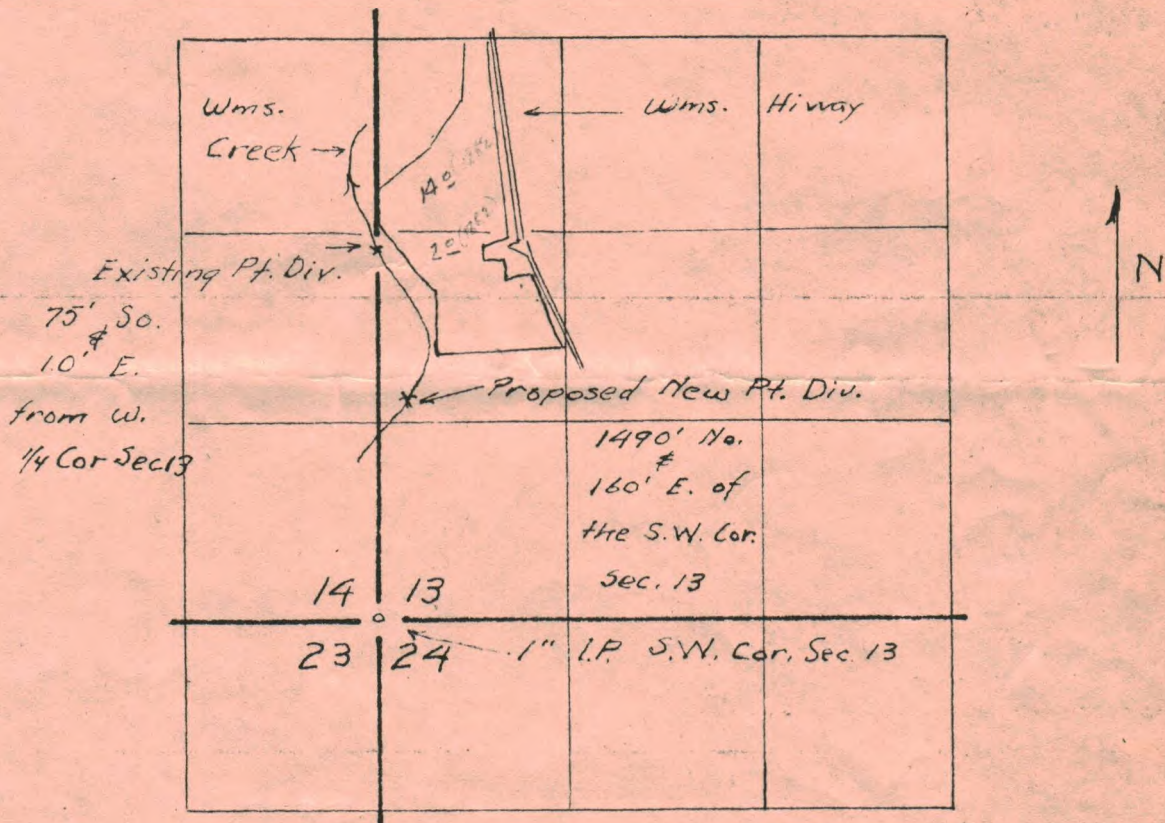 Wms.
Creek
Wms. Hiway
14.0
2.0
Existing Pt. Div.
75' So.
&
10' E.
from W.
1/4 Cor Sec 13
N
Proposed New Pt. Div.
1490' No.
&
160' E. of
the S.W. Cor.
Sec. 13
14 13
23 24
1" I.P. S.W. Cor. Sec 13